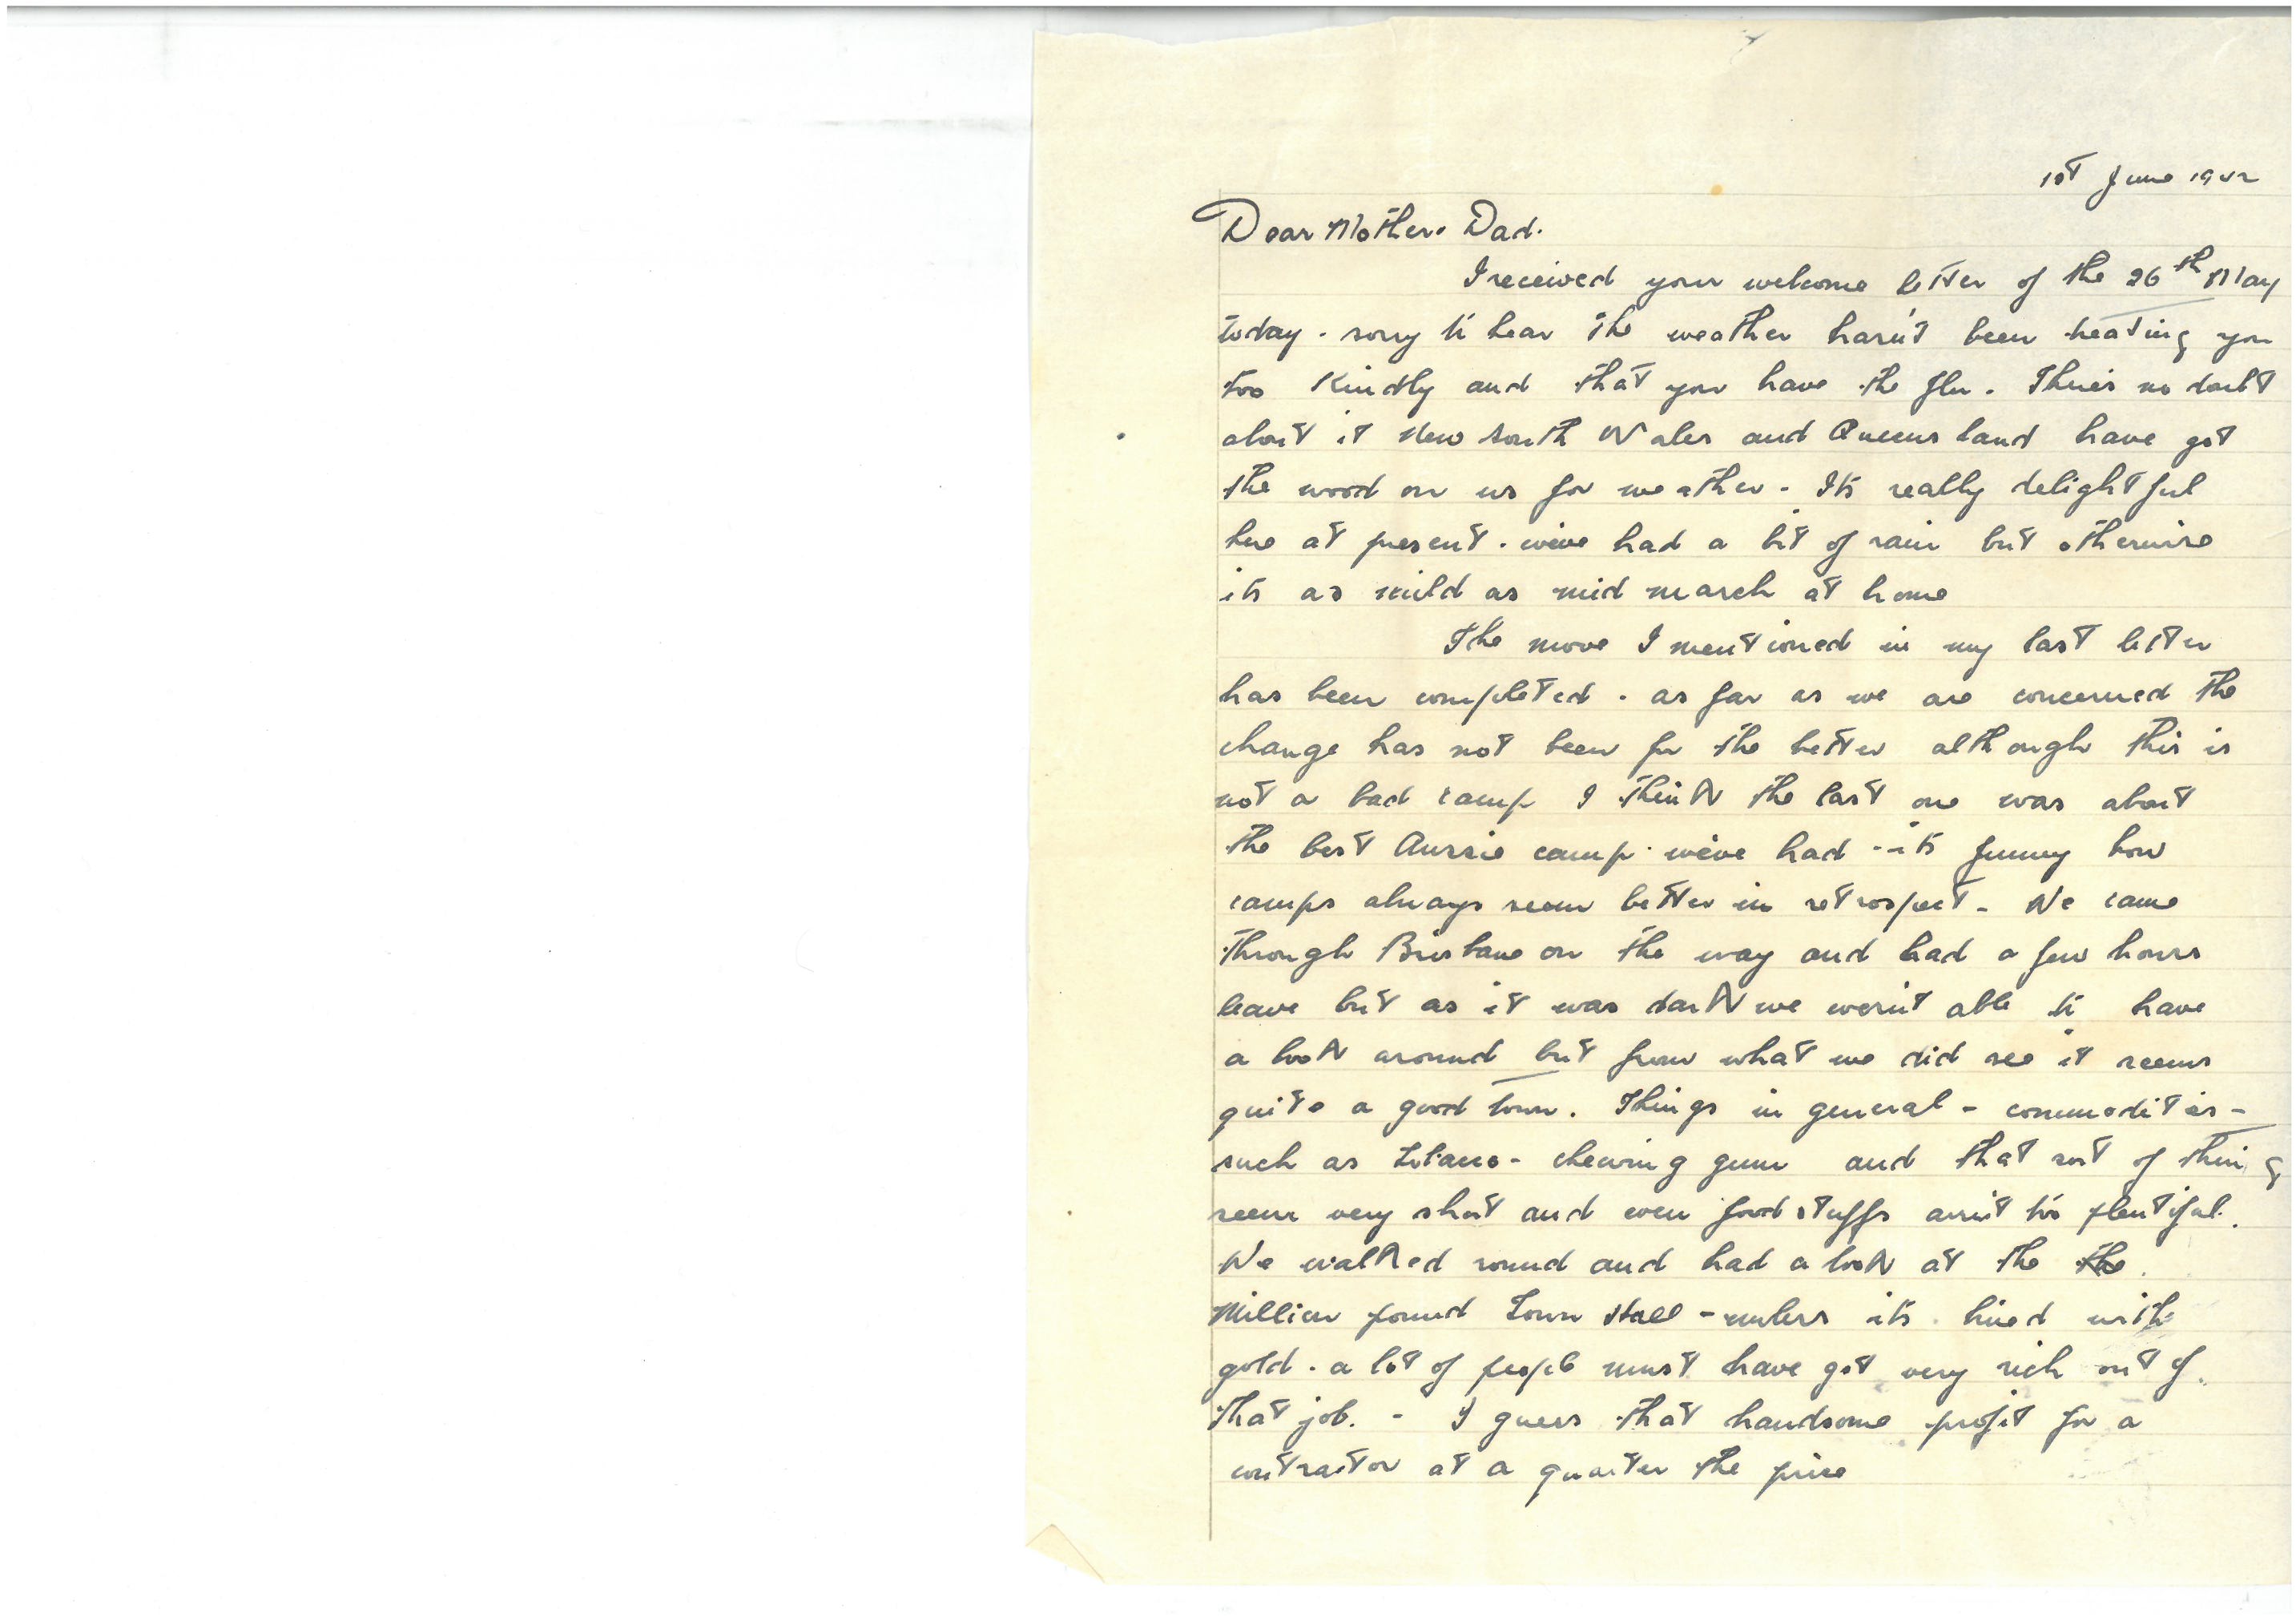 1st June 1942
Dear Mother & Dad.
I received your welcome letter of the 26th May
today. sorry to hear the weather hasn't been treating you
too kindly and that you have the flu. There's no doubt
about it New South Wales and Queensland have got
the wood on us for weather - Its really delightful
here at present. we've had a bit of rain but otherwise
its as mild as mid march at home
The move I mentioned in my last letter
has been completed. as far as we are concerned the
change has not been for the better although this is
not a bad camp I think the last one was about
the best Aussie camp we've had - its funny how
camps always seem better in retrospect - We came
through Brisbane on the way and had a few hours
leave but as it was dark we weren't able to have
a look around but from what we did see it seems
quite a good town. Things in general - commodities -
such as tobacco - chewing gum and that sort of thing
seem very short and even foodstuffs arn't too plentiful.
We walked round and had a look at the the
Million pound Town Hall - unless its lined with
gold. a lot of people must have got very rich out of
that job. - I guess that handsome profit for a
contractor at a quarter the price